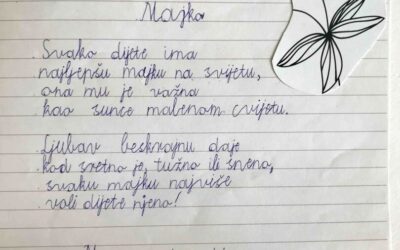 Majka
Svako dijete ima
najljepšu majku na svijetu,
ona mu je važna
kao sunce malenom cvijetu.
Ljubav beskrajnu daje
kad sretno je, tužno ili sneno,
svaku majku najviše
voli dijete njeno!